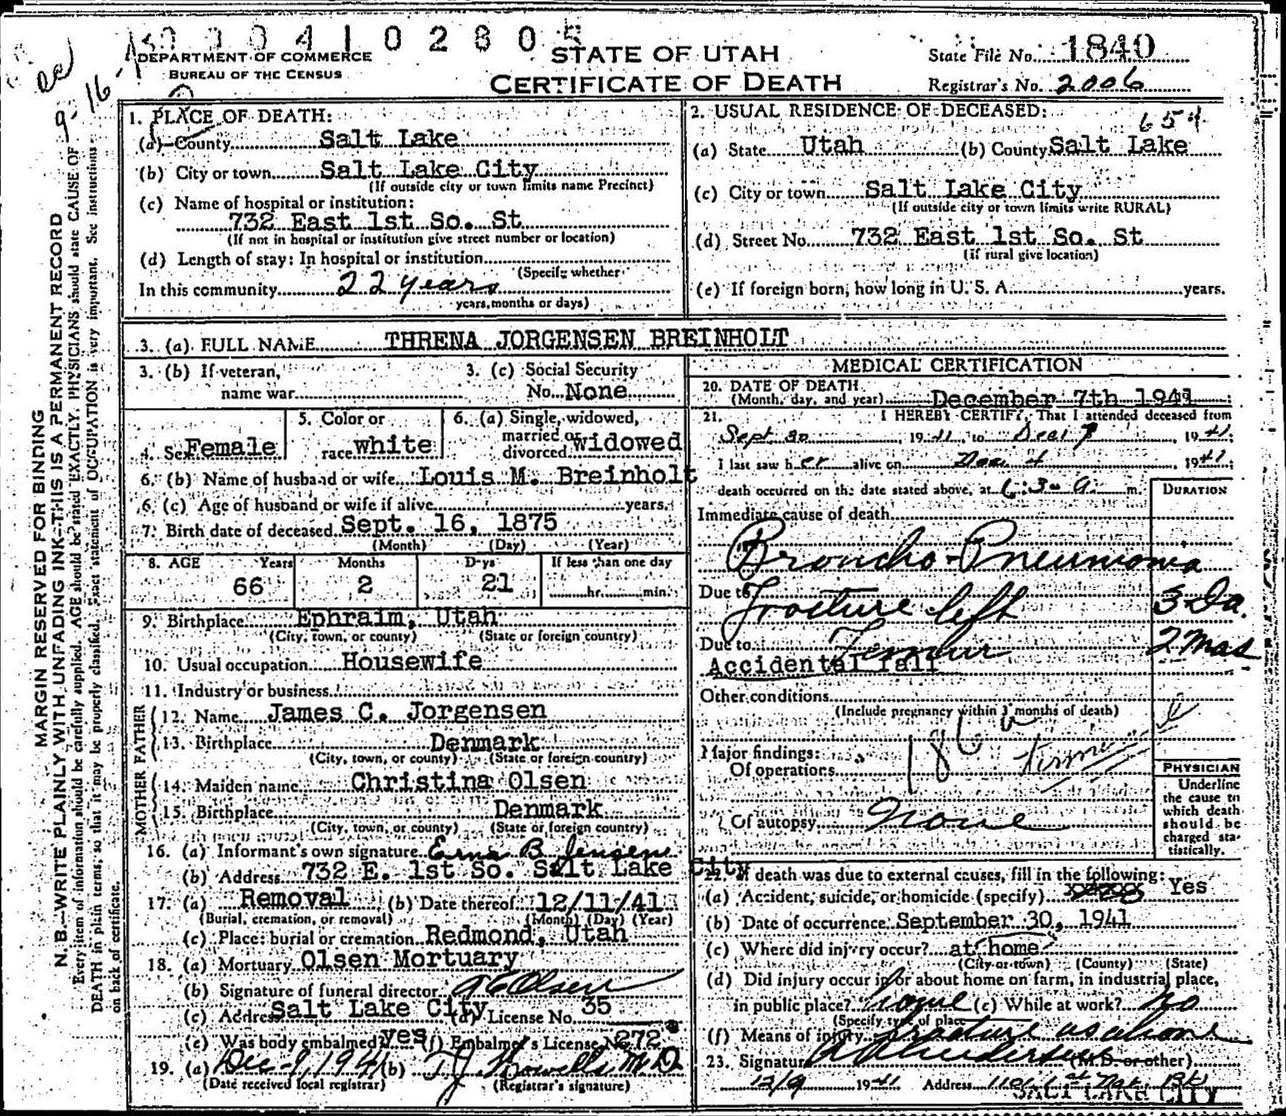 0 0 0 4 1 0 2 8 0 5
DEPARTMENT OF COMMERCE
BUREAU OF THE CENSUS
STATE OF UTAH
CERTIFICATE OF DEATH
State File No. 1840
Registrar's No. 2006
9-16-
MARGIN RESERVED FOR BINDING
N. B.—WRITE PLAINLY WITH UNFADING INK—THIS IS A PERMANENT RECORD
Every item of information should be carefully supplied. AGE should be stated EXACTLY. PHYSICIANS should state CAUSE OF
DEATH in plain terms, so that it may be properly classified. Exact statement of OCCUPATION is very important. See instructions
on back of certificate.
1. PLACE OF DEATH:
(a) County Salt Lake
(b) City or town Salt Lake City
(If outside city or town limits name Precinct)
(c) Name of hospital or institution:
732 East 1st So. St
(If not in hospital or institution give street number or location)
(d) Length of stay: In hospital or institution
(Specify whether
In this community 22 years
years, months or days)
2. USUAL RESIDENCE OF DECEASED:
654
(a) State Utah (b) County Salt Lake
(c) City or town Salt Lake City
(If outside city or town limits write RURAL)
(d) Street No. 732 East 1st So. St
(If rural give location)
(e) If foreign born, how long in U. S. A. years.
3. (a) FULL NAME THRENA JORGENSEN BREINHOLT
3. (b) If veteran,
name war
3. (c) Social Security
No. None
4. Sex Female
5. Color or
race white
6. (a) Single, widowed,
married or
divorced widowed
6. (b) Name of husband or wife Louis M. Breinholt
6. (c) Age of husband or wife if alive years.
7. Birth date of deceased Sept. 16, 1875
(Month) (Day) (Year)
8. AGE Years Months Days If less than one day
66 2 21 hr. min.
9. Birthplace Ephraim, Utah
(City, town, or county) (State or foreign country)
10. Usual occupation Housewife
11. Industry or business
FATHER
12. Name James C. Jorgensen
13. Birthplace Denmark
(City, town, or county) (State or foreign country)
MOTHER
14. Maiden name Christina Olsen
15. Birthplace Denmark
(City, town, or county) (State or foreign country)
16. (a) Informant's own signature Erna B. Jensen
(b) Address 732 E. 1st So. Salt Lake City
17. (a) Removal (b) Date thereof 12/11/41
(Burial, cremation, or removal) (Month) (Day) (Year)
(c) Place: burial or cremation Redmond, Utah
18. (a) Mortuary Olsen Mortuary
(b) Signature of funeral director Olsen
(c) Address Salt Lake City License No. 35
(e) Was body embalmed? yes (f) Embalmer's License No. 272
19. (a) Dec 9, 1941 (b) T J Howells M.D.
(Date received local registrar) (Registrar's signature)
MEDICAL CERTIFICATION
20. DATE OF DEATH
(Month, day, and year) December 7th 1941
21. I HEREBY CERTIFY, That I attended deceased from
Sept 30, 1941, to Dec 7, 1941
I last saw her alive on Dec 4, 1941
death occurred on the date stated above, at 6:30 a. m.
DURATION
Immediate cause of death
Broncho-Pneumonia
Due to Fracture left 3 Da.
Due to Femur 2 Mos
Accidental fall
Other conditions
(Include pregnancy within 3 months of death)
186a
Major findings:
Of operations
Of autopsy None
PHYSICIAN
Underline
the cause to
which death
should be
charged sta-
tistically.
22. If death was due to external causes, fill in the following:
(a) Accident, suicide, or homicide (specify) Yes
(b) Date of occurrence September 30, 1941
(c) Where did injury occur? at home
(City or town) (County) (State)
(d) Did injury occur in or about home on farm, in industrial place,
in public place? home (e) While at work? no
(Specify type of place)
(f) Means of injury fracture as above
23. Signature (M. D. or other)
12/9 1941 Address
SALT LAKE CITY